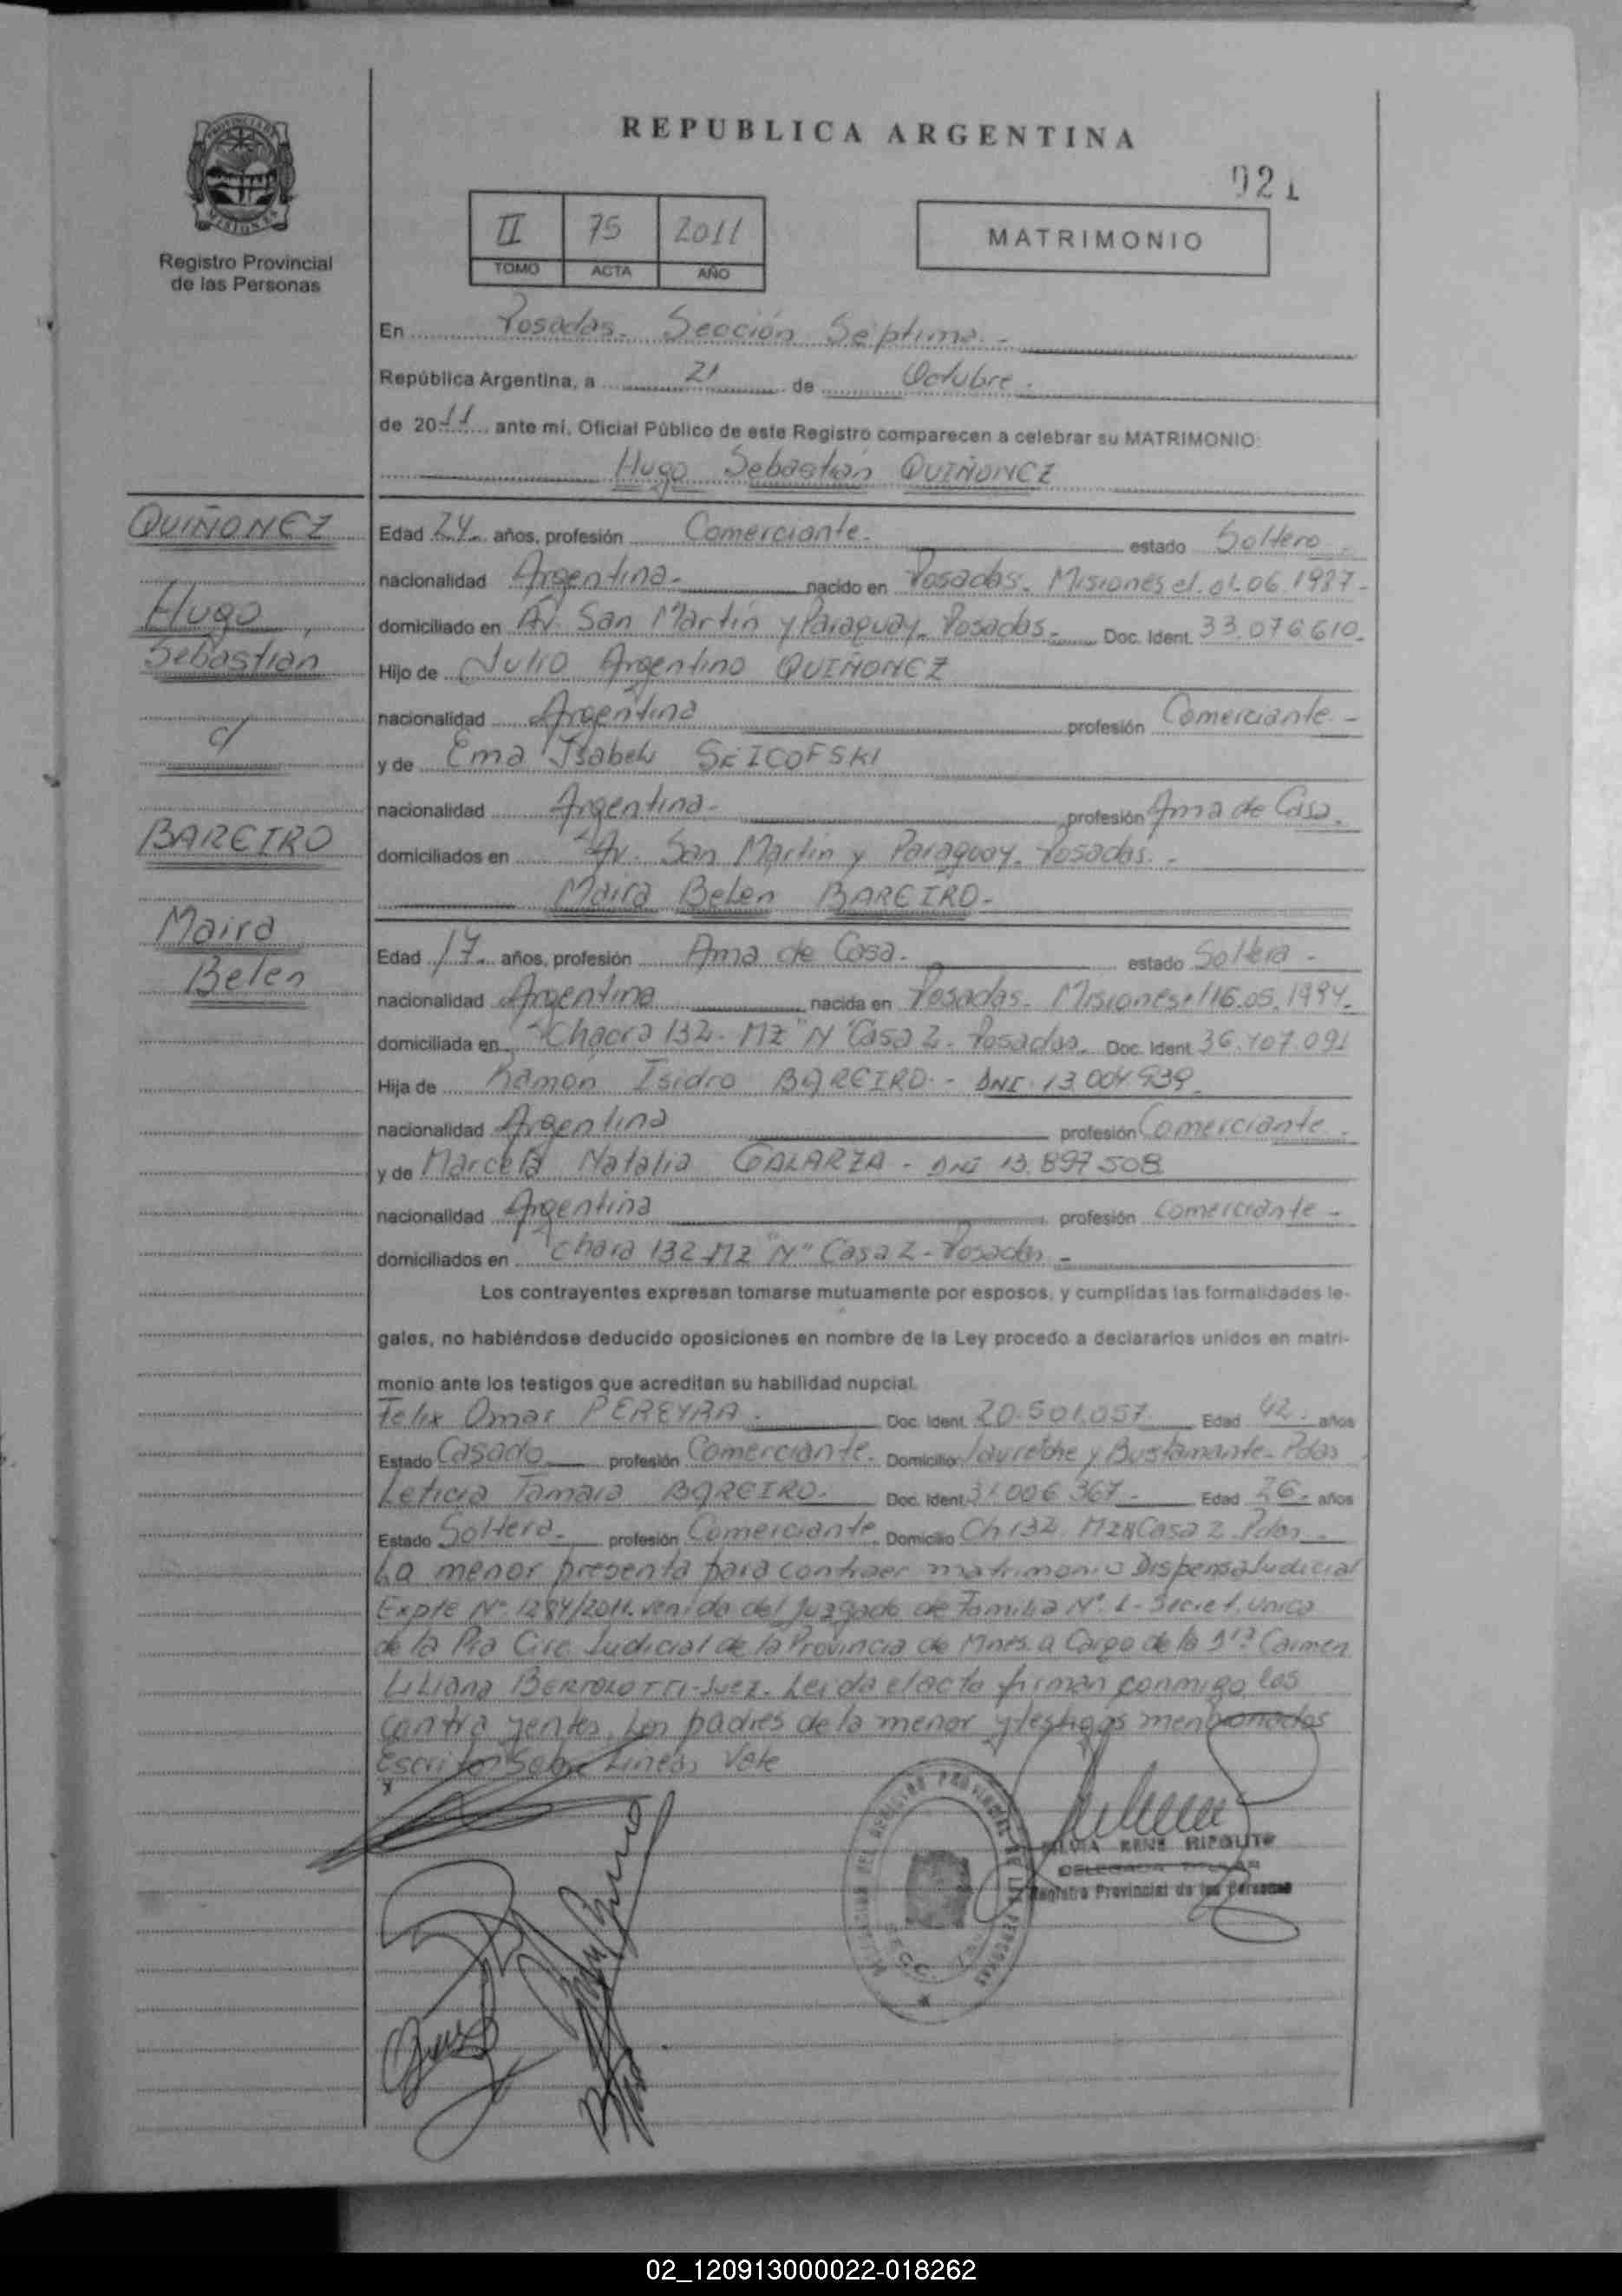 REPUBLICA ARGENTINA
021
PROVINCIA DE MISIONES
Registro Provincial
de las Personas
II 75 2011
TOMO ACTA AÑO
MATRIMONIO
En Posadas. Sección Séptima.-
República Argentina, a 21 de Octubre.
de 2011 ante mí, Oficial Público de este Registro comparecen a celebrar su MATRIMONIO:
Hugo Sebastián QUIÑONEZ
QUIÑONEZ
Hugo,
Sebastian
c/
BAREIRO
Maira
Belen
Edad 24. años, profesión Comerciante. estado Soltero.
nacionalidad Argentina.- nacido en Posadas. Misiones el. 01.06.1987-
domiciliado en Av. San Martín y Paraguay. Posadas.- Doc. Ident. 33.076.610.
Hijo de Julio Argentino QUIÑONEZ
nacionalidad Argentina profesión Comerciante.-
y de Ema Isabel SEICOFSKI
nacionalidad Argentina.- profesión Ama de Casa.
domiciliados en Av. San Martín y Paraguay. Posadas.-
Maira Belen BAREIRO-
Edad 17. años, profesión Ama de Casa. estado Soltera-
nacionalidad Argentina nacida en Posadas. Misiones el 16.05.1994.
domiciliada en Chacra 132. Mz "N" Casa 2. Posadas. Doc. Ident. 36.407.091
Hija de Ramón Isidro BAREIRO.- DNI. 13.004.939.
nacionalidad Argentina profesión Comerciante.
y de Marcela Natalia GALARZA - DNI 13.897.508
nacionalidad Argentina profesión Comerciante-
domiciliados en Chara 132 Mz "N" Casa 2 - Posadas.-
Los contrayentes expresan tomarse mutuamente por esposos, y cumplidas las formalidades le-
gales, no habiéndose deducido oposiciones en nombre de la Ley procedo a declararlos unidos en matri-
monio ante los testigos que acreditan su habilidad nupcial.
Felix Omar PEREYRA. Doc. Ident. 20.501.057. Edad 42. años
Estado Casado profesión Comerciante. Domicilio Jauretche y Bustamante- Pdas
Leticia Tamara BAREIRO. Doc. Ident. 31.006.367- Edad 26. años
Estado Soltera. profesión Comerciante. Domicilio Ch 132. Mz N Casa 2 Pdas.-
La menor presenta para contraer matrimonio Dispensa Judicial
Expte Nº 1284/2011. venida del Juzgado de Familia Nº. 1- Secret. Unica
de la Pra Circ. Judicial de la Provincia de Mnes. a Cargo de la Carmen
Liliana BERTOLOTTI-Juez. Leida el acta firman conmigo los
contra yentes, los padres de la menor y testigos mencionados
Escritos Sobre Lineas Vale
SILVIA RENE RIPOLITO
DELEGADA TITULAR
Registro Provincial de las Personas
02_120913000022-018262